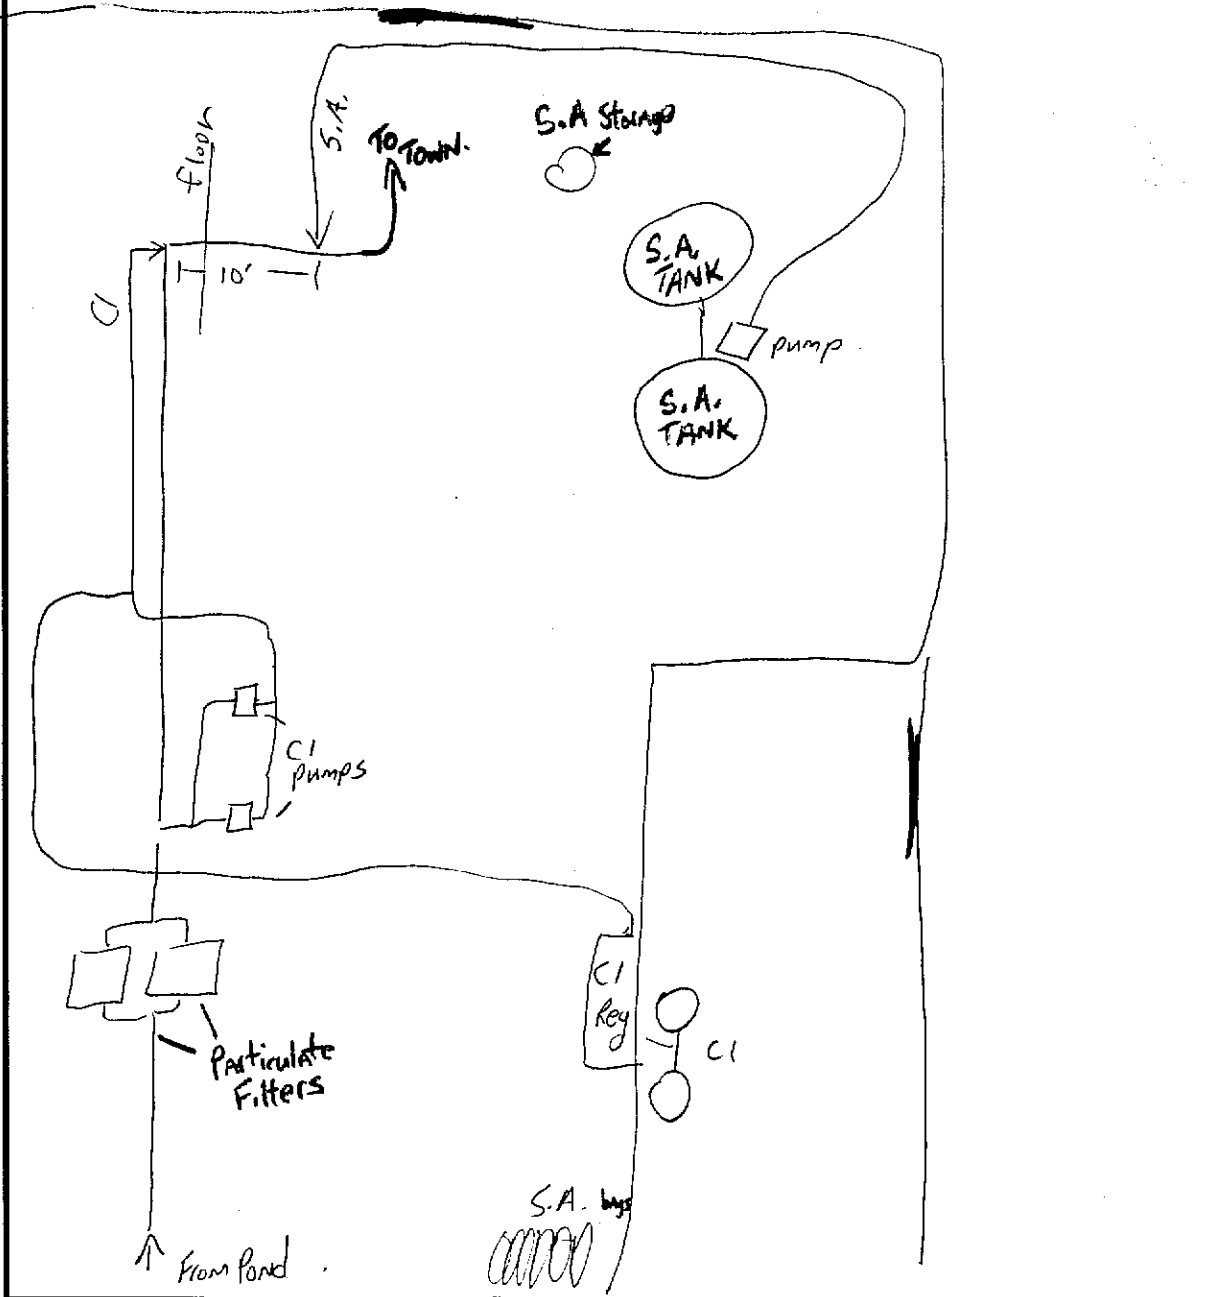 floor
S.A.
TO
TOWN.
S.A Storage
S.A.
TANK
10'
Cl
pump
S.A.
TANK
Cl
pumps
Cl
Reg
Cl
Particulate
Filters
S.A. bags
From Pond